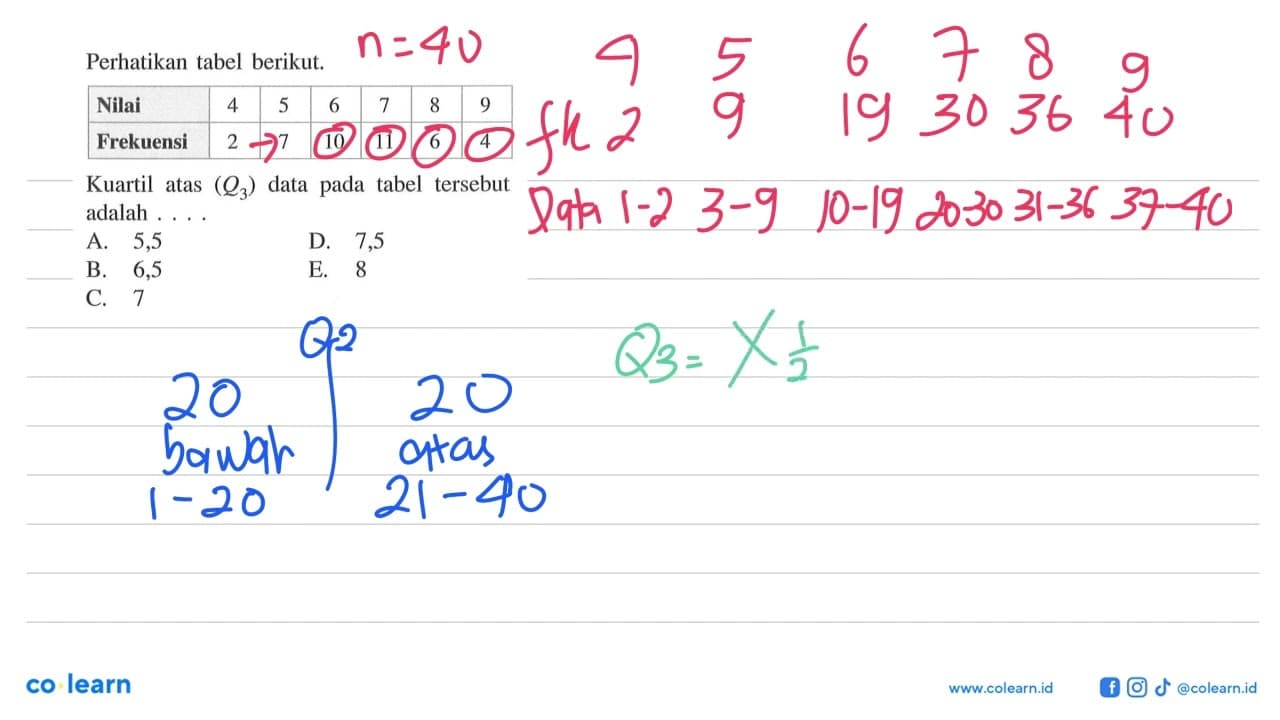 Perhatikan tabel berikut.
n = 40
Nilai 4 5 6 7 8 9
Frekuensi 2 7 10 11 6 4
4 5 6 7 8 9
fk 2 9 19 30 36 40
Data 1-2 3-9 10-19 20-30 31-36 37-40
Kuartil atas (Q₃) data pada tabel tersebut
adalah . . . .
A. 5,5 D. 7,5
B. 6,5 E. 8
C. 7
Q2
20 20
bawah atas
1-20 21-40
Q3 = X 1/2
co learn
www.colearn.id
@colearn.id